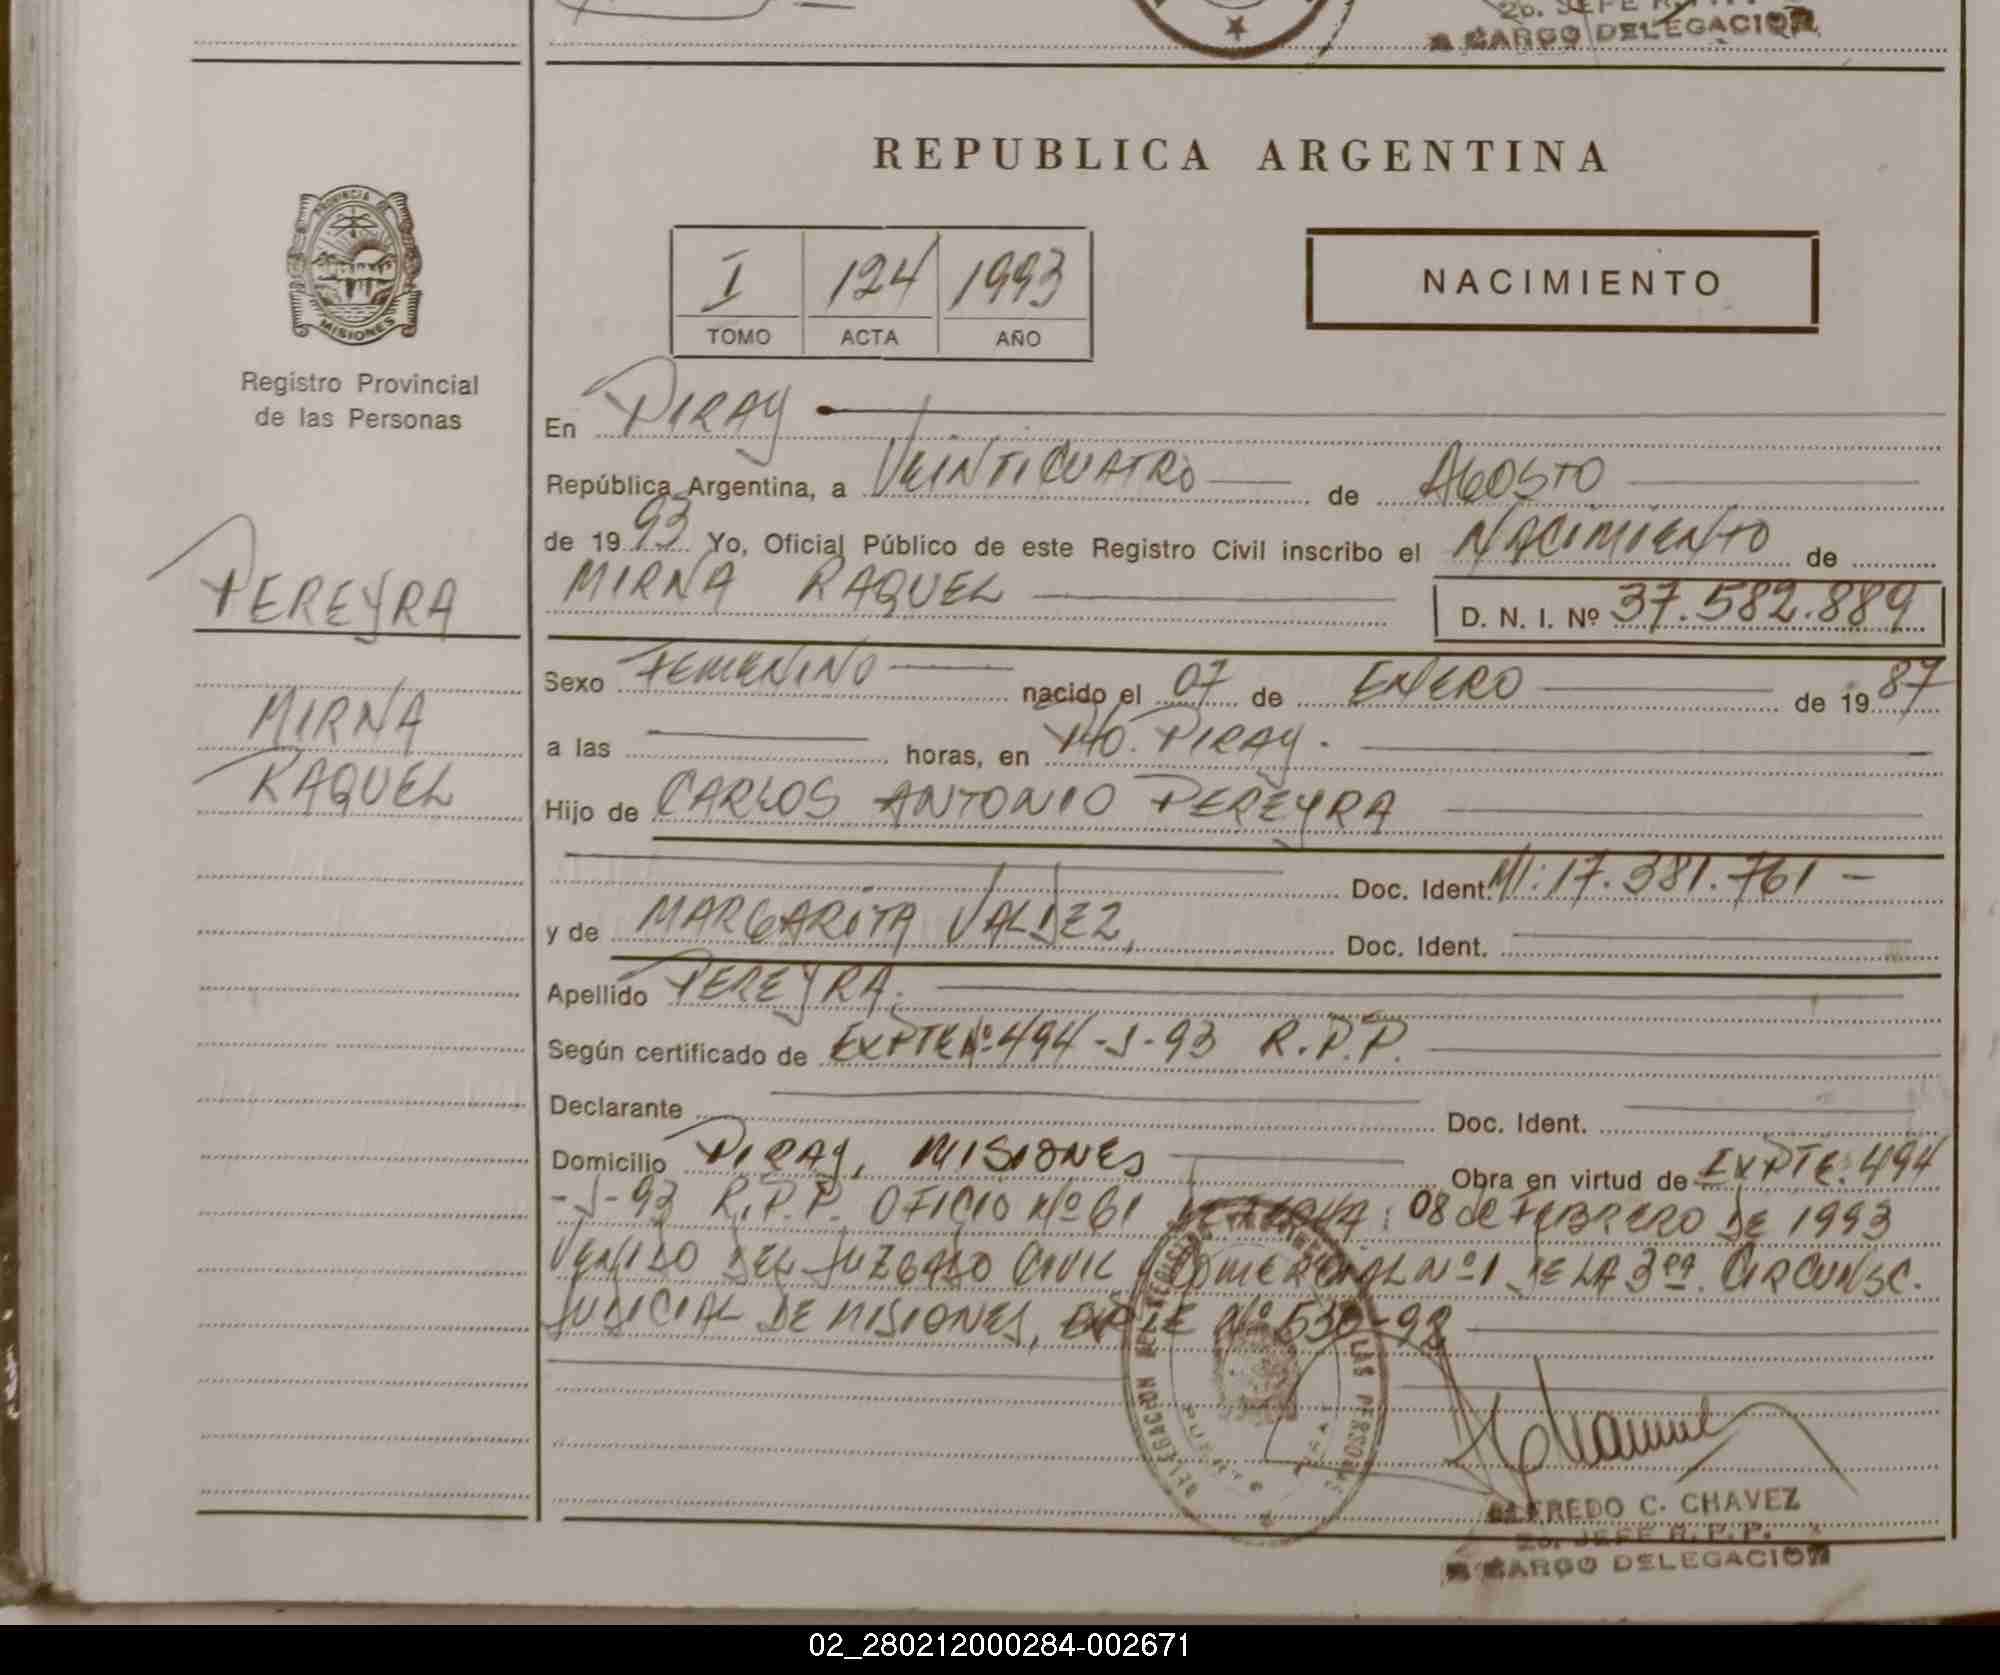 2o. JEFE R.P.P.
A CARGO DELEGACION
REPUBLICA ARGENTINA
PROVINCIA DE
MISIONES
Registro Provincial
de las Personas
I 124 1993
TOMO ACTA AÑO
NACIMIENTO
En PIRAY
República Argentina, a VEINTICUATRO de AGOSTO
de 1993 Yo, Oficial Público de este Registro Civil inscribo el NACIMIENTO de
MIRNA RAQUEL D. N. I. Nº 37.582.889
PEREYRA
MIRNA
RAQUEL
Sexo FEMENINO nacido el 07 de ENERO de 1987
a las horas, en Pto. PIRAY.
Hijo de CARLOS ANTONIO PEREYRA
Doc. Ident. MI: 17.381.761 -
y de MARGARITA VALDEZ, Doc. Ident.
Apellido PEREYRA.
Según certificado de EXPTE Nº 494-J-93 R.P.P.
Declarante Doc. Ident.
Domicilio PIRAY, MISIONES Obra en virtud de EXPTE. 494
-J-93 R.P.P. OFICIO Nº 61 DE FECHA: 08 de FEBRERO DE 1993
VENIDO DEL JUZGADO CIVIL y COMERCIAL Nº 1 DE LA 3ra. CIRCUNSC.
JUDICIAL DE MISIONES, EXPTE Nº 530-92
DELEGACION DEL REGISTRO LAS PERSONAS
PUERTO PIRAY
ALFREDO C. CHAVEZ
2o. JEFE R.P.P.
A CARGO DELEGACION
02_280212000284-002671